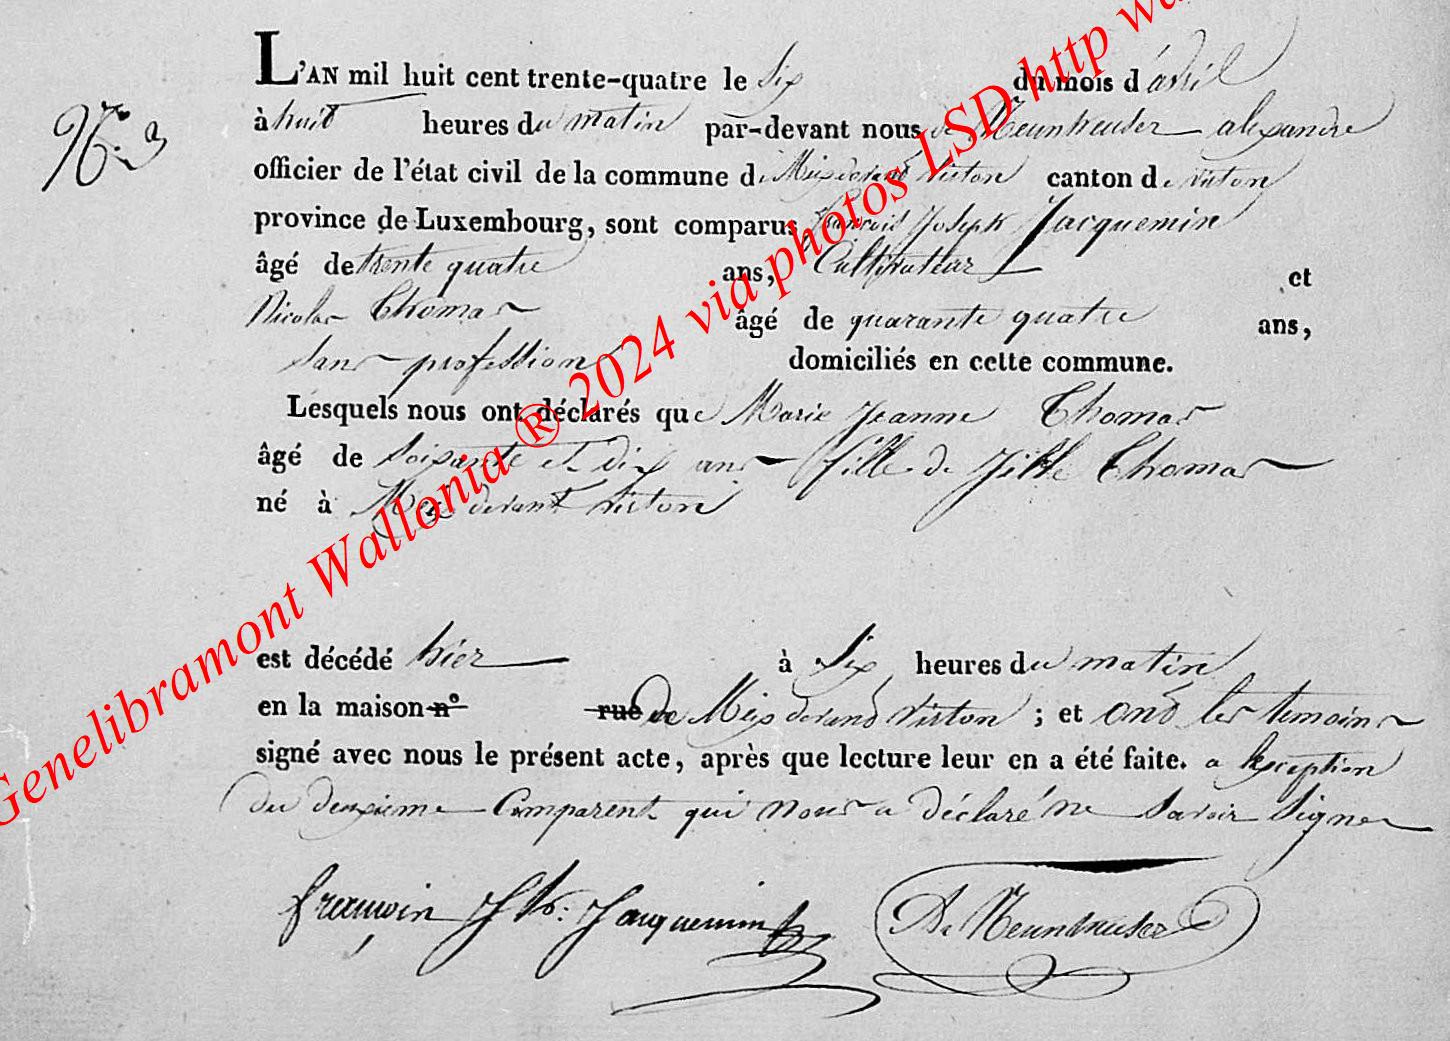 L'AN mil huit cent trente-quatre le Six du mois d'avril
N.° 3
à huit heures du matin par-devant nous de Neunheuser alexandre
officier de l'état civil de la commune de Meix devant virton canton de virton
province de Luxembourg, sont comparus françois Joseph Jacquemin
âgé de trente quatre ans, Cultivateur et
Nicolas Thomas âgé de quarante quatre ans,
sans profession domiciliés en cette commune.
Lesquels nous ont déclarés que Marie Jeanne Thomas
âgé de soixante et dix ans fille de Thomas
né à Meix devant virton
est décédé hier à Six heures du matin
en la maison n° rue de Meix devand virton ; et ond les temoins
signé avec nous le présent acte, après que lecture leur en a été faite. a lexception
du deuxieme Comparent qui nous a déclaré ne savoir signer
Jacquemin De Neunheuser
Genelibramont Wallonia ® 2024 via photos LSD http wa